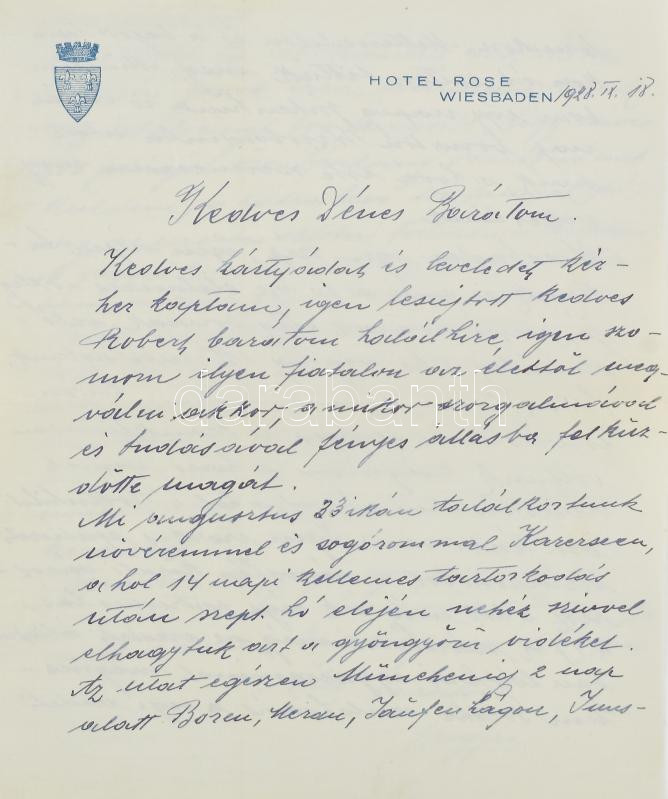 HOTEL ROSE
WIESBADEN 1928. IX. 18.
Kedves Dénes Barátom.
Kedves kártyádat, és leveledet kéz-
hez kaptam, igen lesujtott kedves
Robert, barátom halálhire, igen szo-
moru ilyen fiatalon az élettől meg-
válni akkor, amikor szorgalmával
és tudásával fényes állásba felküz-
dötte magát.
Mi augusztus 23ikán találkoztunk
növéremmel és sogórommal Karersee-n,
a hol 14 napi kellemes tartozkodás
után szept. hó elején nehéz szivvel
elhagytuk azt a gyöngyörü vidéket.
Az utat egészen Münchenig 2 nap
alatt Bozen, Meran, Jaufen, Inns-
darabanth